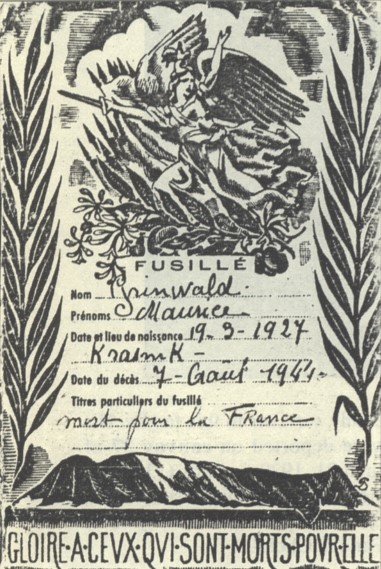 FUSILLÉ
Nom Grinwald
Prénoms Maurice
Date et lieu de naissance 19-3-1927
Krasnik -
Date du décès 7-Août 1944-
Titres particuliers du fusillé
mort pour la FRance
GLOIRE·A·CEVX·QVI·SONT·MORTS·POVR·ELLE